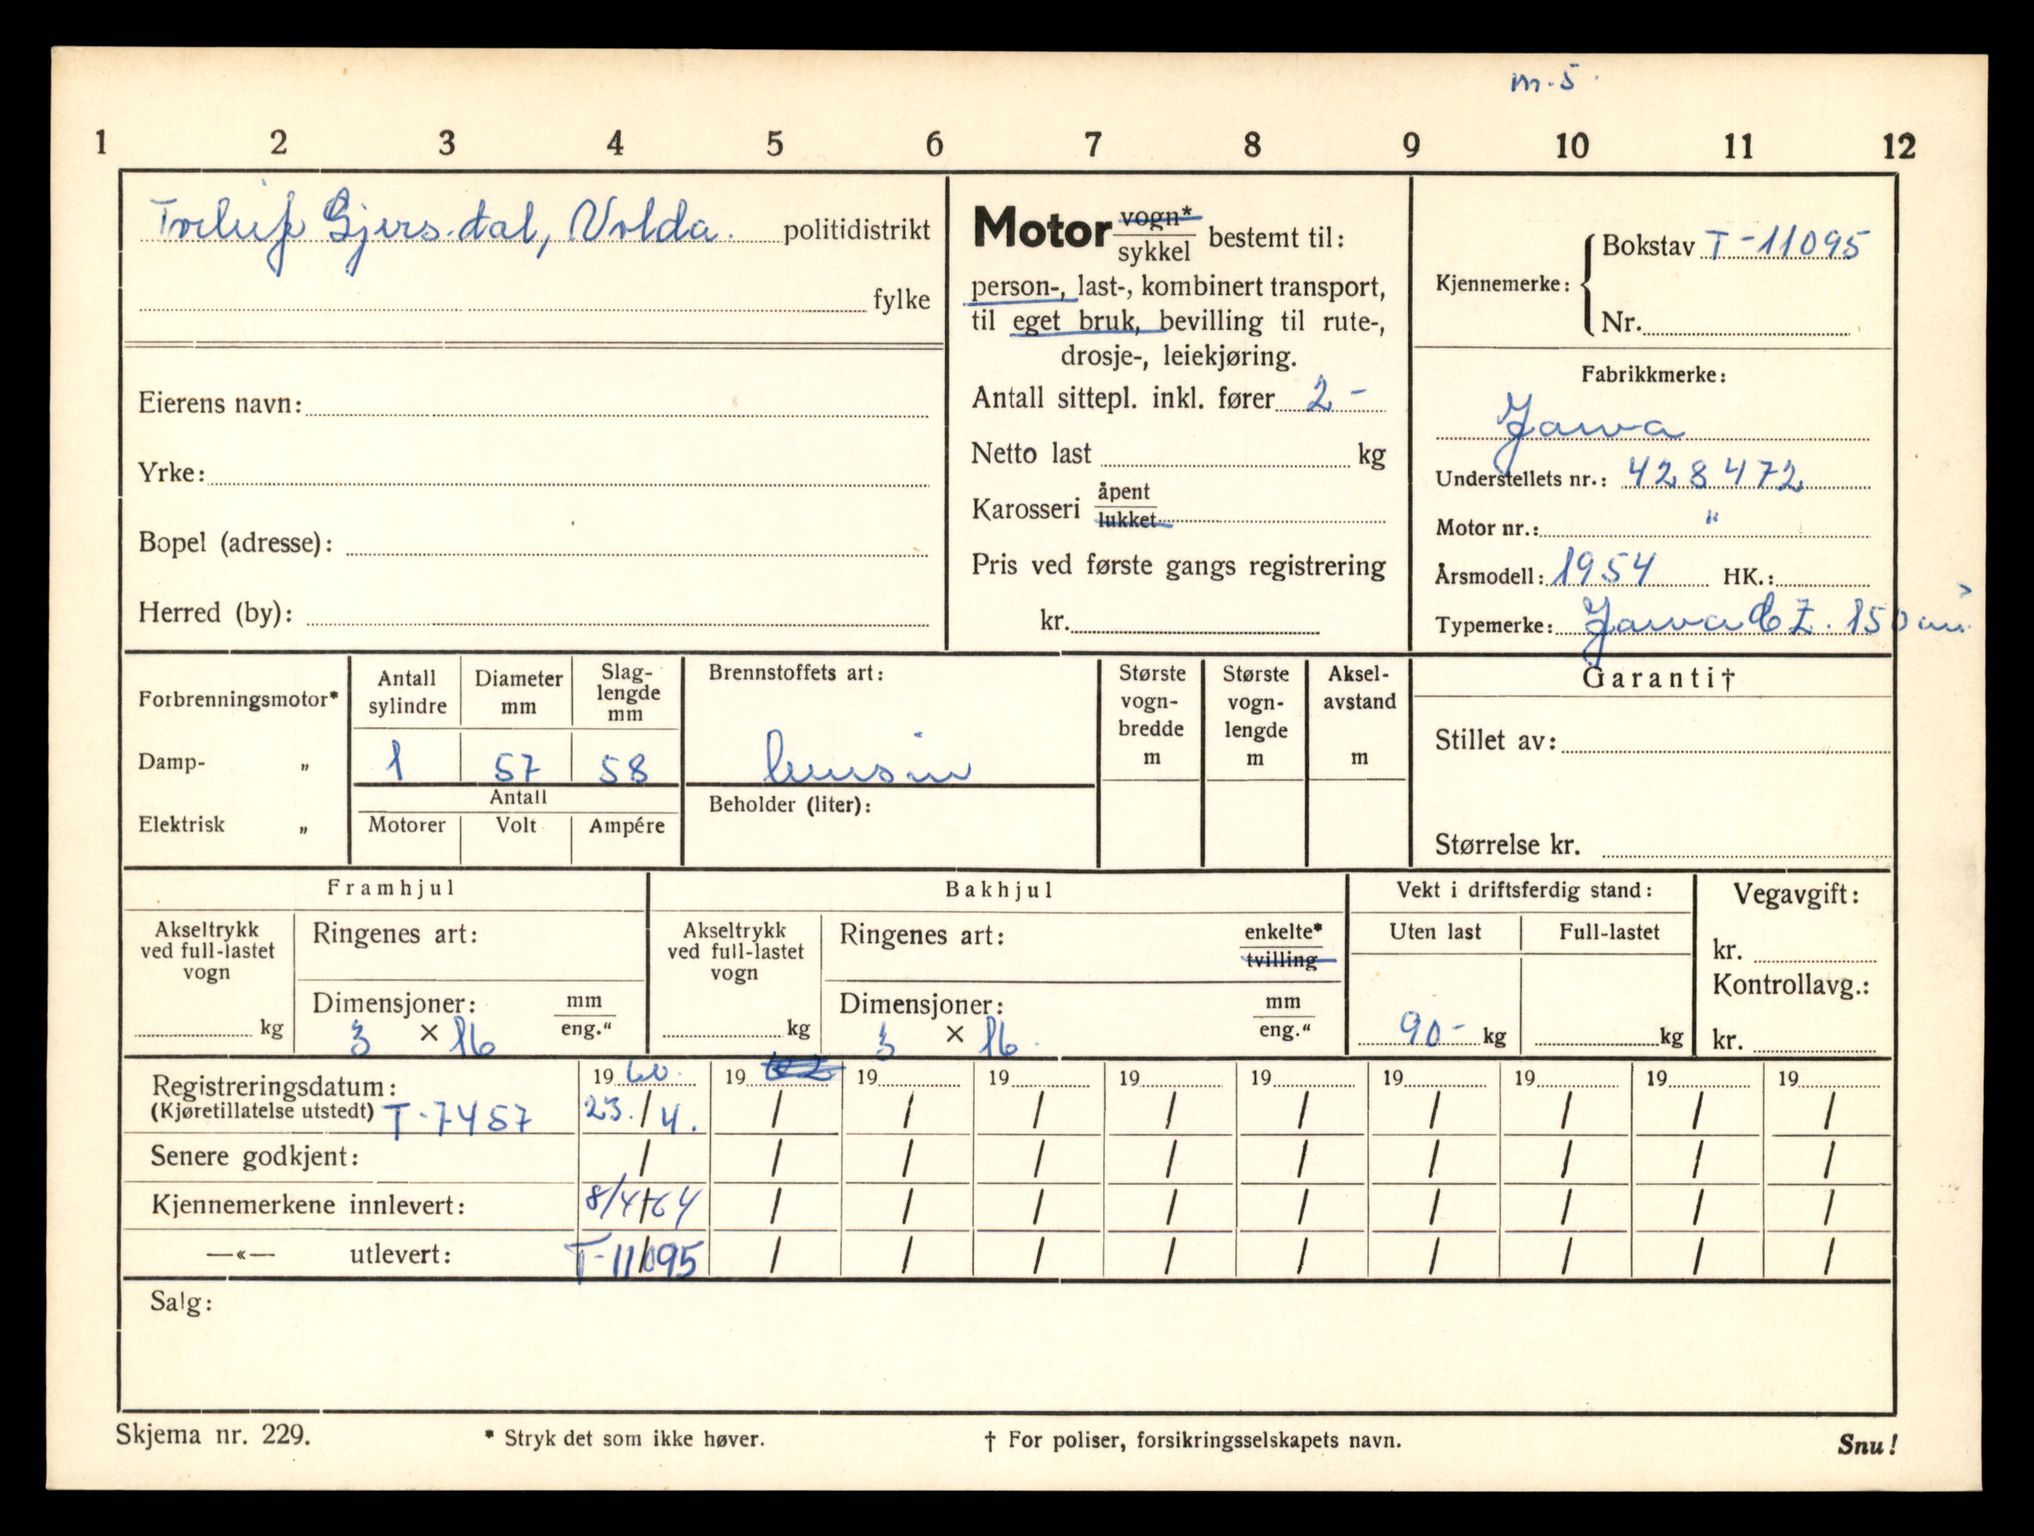 m. 5.
1 2 3 4 5 6 7 8 9 10 11 12
Gjersdal, Volda. politidistrikt
fylke
Eierens navn:
Yrke:
Bopel (adresse):
Herred (by):
Motor vogn* / sykkel bestemt til:
person-, last-, kombinert transport,
til eget bruk, bevilling til rute-,
drosje-, leiekjøring.
Antall sittepl. inkl. fører 2 -
Netto last kg
Karosseri åpent / lukket
Pris ved første gangs registrering
kr.
Kjennemerke: Bokstav T-11095
Nr.
Fabrikkmerke:
Jawa
Understellets nr.: 428472
Motor nr.: "
Årsmodell: 1954 HK.:
Typemerke: Jawa CZ. 150 cm³
Forbrenningsmotor*
Damp- „
Elektrisk „
Antall sylindre
Diameter mm
Slag-lengde mm
1 57 58
Antall
Motorer Volt Ampére
Brennstoffets art:
bensin
Beholder (liter):
Største vogn-bredde m
Største vogn-lengde m
Aksel-avstand m
Garanti†
Stillet av:
Størrelse kr.
Framhjul
Akseltrykk ved full-lastet vogn
kg
Ringenes art:
Dimensjoner: mm / eng.“
3 × 16
Bakhjul
Akseltrykk ved full-lastet vogn
kg
Ringenes art: enkelte* / tvilling
Dimensjoner: mm / eng.“
3 × 16.
Vekt i driftsferdig stand:
Uten last Full-lastet
90- kg kg
Vegavgift:
kr.
Kontrollavg.:
kr.
Registreringsdatum: 19 60. 19 19 19 19 19 19 19 19 19
(Kjøretillatelse utstedt) T-7457 23. / 4. / / / / / / / / /
Senere godkjent: / / / / / / / / / /
Kjennemerkene innlevert: 8/4-64 / / / / / / / / /
—«— utlevert: T-11095 / / / / / / / / /
Salg:
Skjema nr. 229. * Stryk det som ikke høver. † For poliser, forsikringsselskapets navn. Snu!